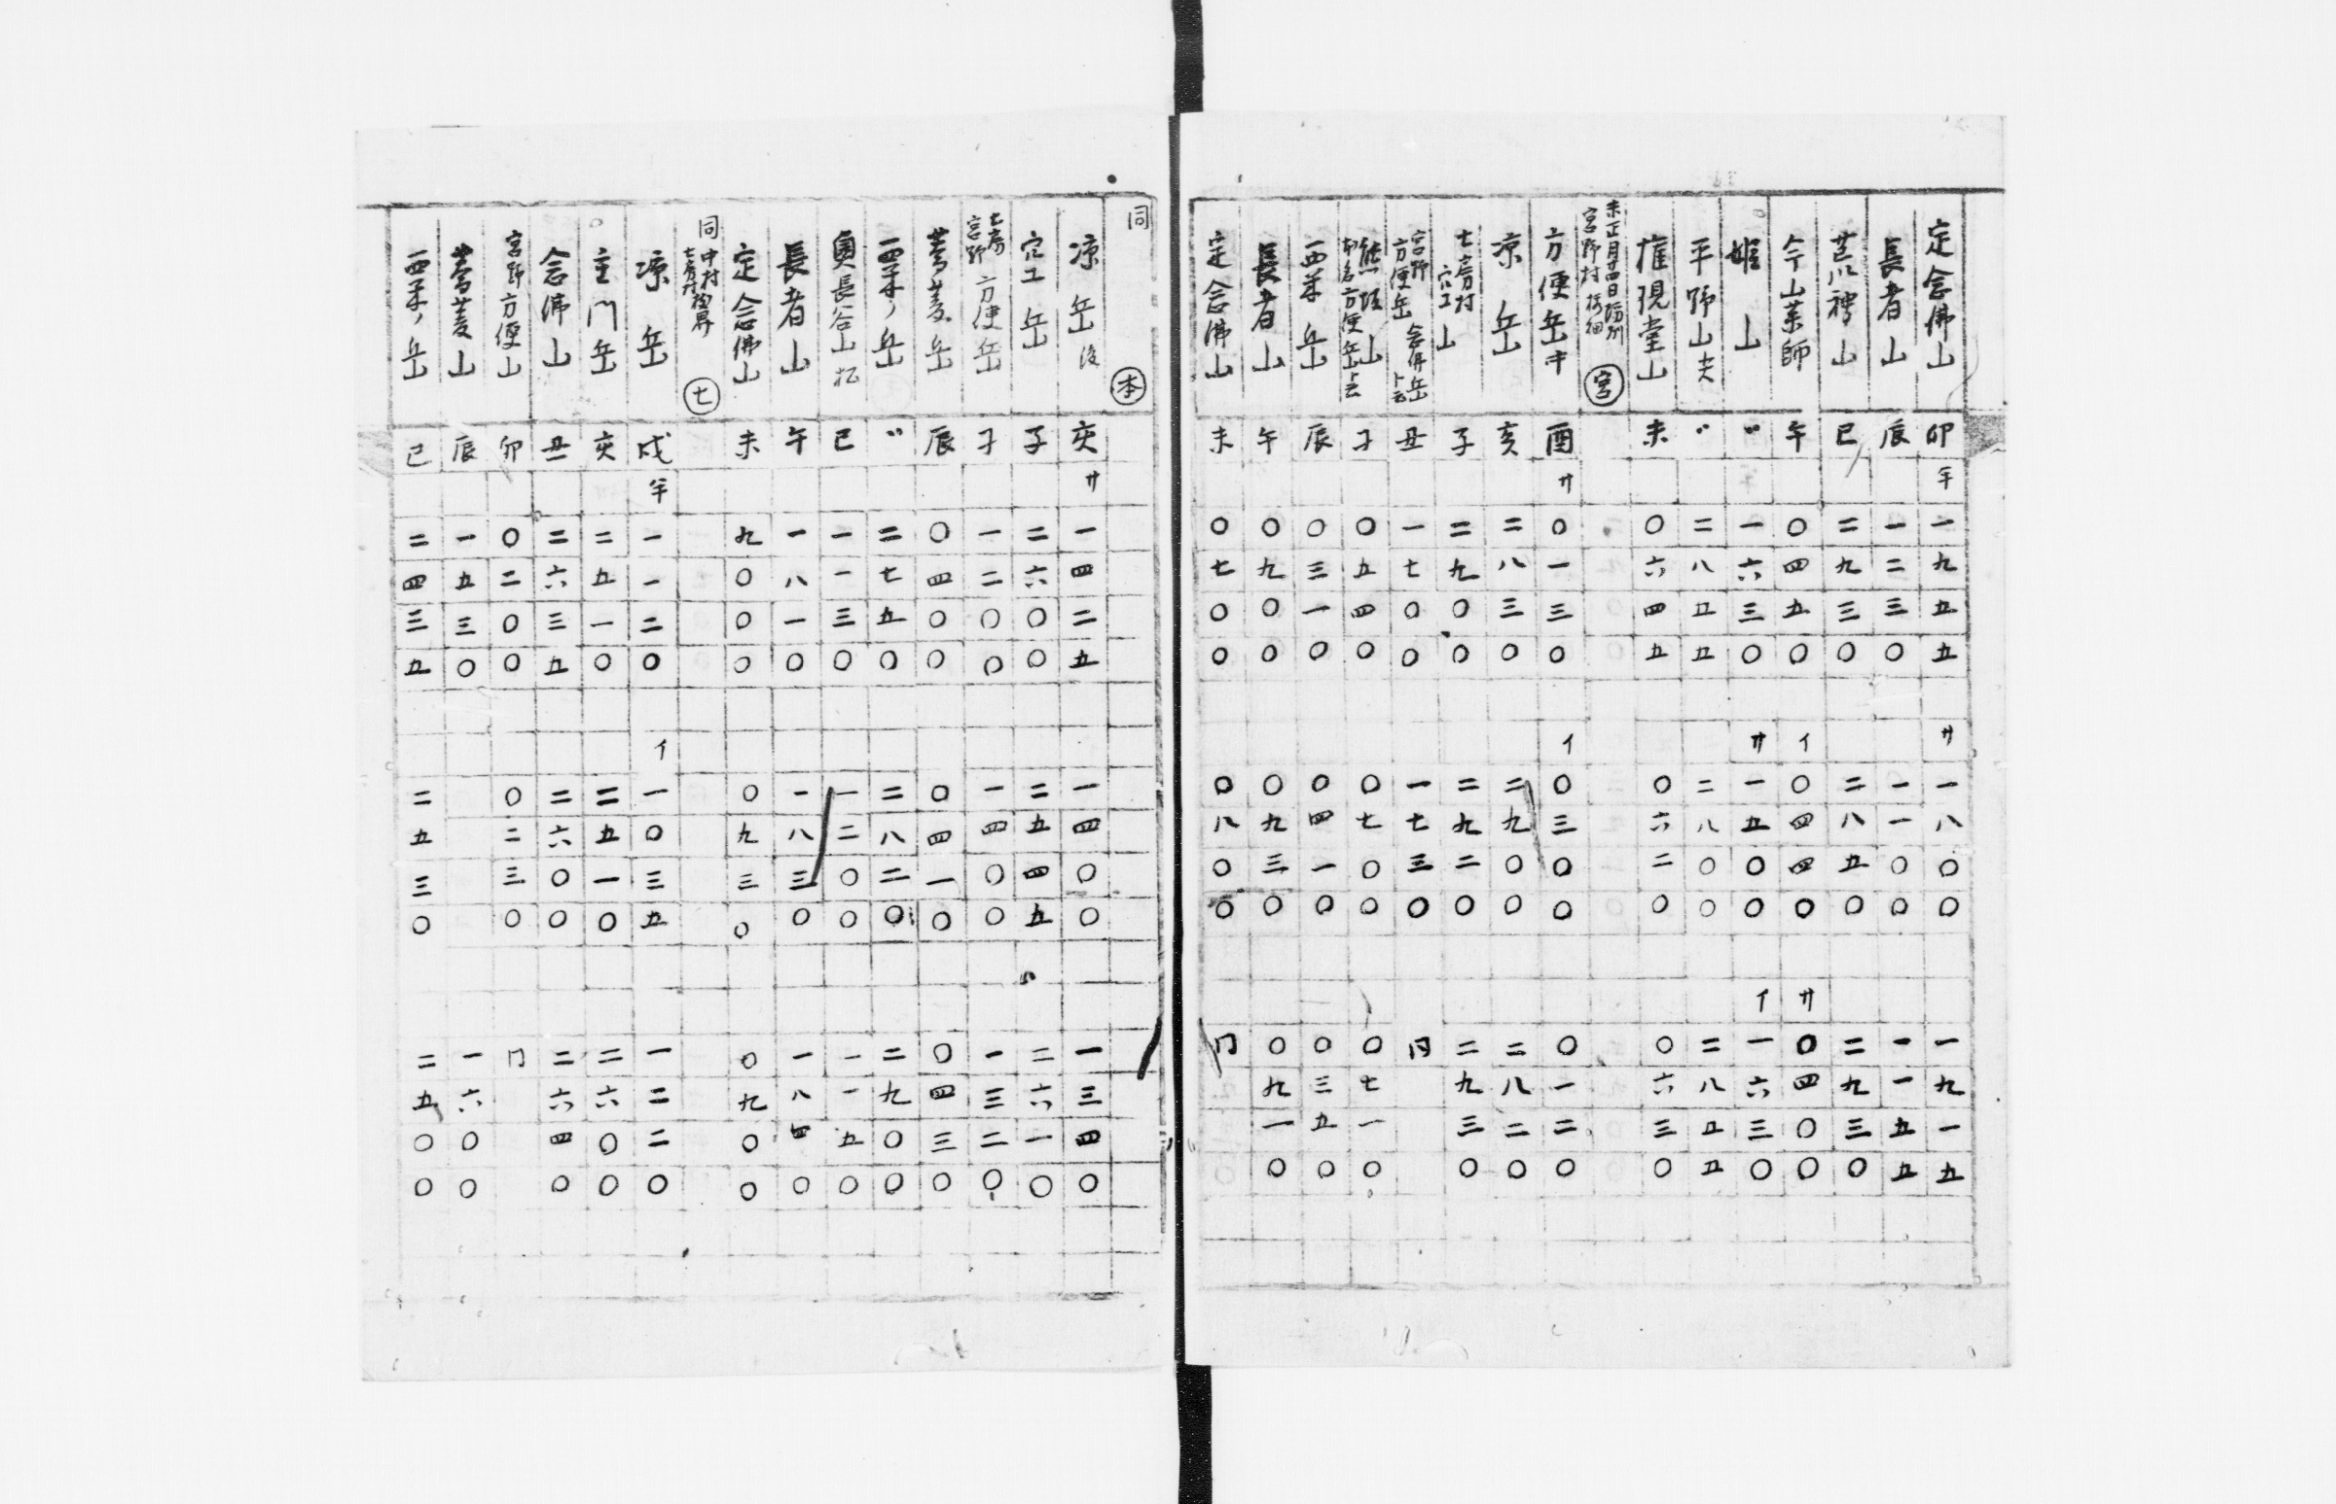 定念佛山 卯 半 一九五五 サ 一八〇〇 一九一五
長者山 辰 一二三〇 一一〇〇 一一五五
荒神山 巳 二九三〇 二八五〇 二九三〇
今山薬師 午 〇四五〇 イ 〇四四〇 サ 〇四〇〇
姫山 〃 一六三〇 サ 一五〇〇 イ 一六三〇
平野山 〃 二八五五 二八〇〇 二八五五
権現堂山 未 〇六四五 〇六二〇 〇六三〇
宮野村 宮
方便岳 酉 サ 〇一三〇 イ 〇三〇〇 〇一二〇
凉岳 亥 二八三〇 二九〇〇 二八二〇
七房村 穴工山 子 二九〇〇 二九二〇 二九三〇
宮野 方便岳 念佛岳ト云 丑 一七〇〇 一七三〇 同
熊坂山 子 〇五四〇 〇七〇〇 〇七一〇
西岳 辰 〇三一〇 〇四一〇 〇三五〇
長者山 午 〇九〇〇 〇九三〇 〇九一〇
定念佛山 未 〇七〇〇 〇八〇〇 同
同 本
凉岳 亥 サ 一四二五 一四〇〇 一三四〇
穴工岳 子 二六〇〇 二五四五 二六一〇
七房 宮野 方便岳 子 一二〇〇 一四〇〇 一三二〇
岳 辰 〇四〇〇 〇四一〇 〇四三〇
西ノ岳 〃 二七五〇 二八二〇 二九〇〇
奥長谷山 巳 一一三〇 一二〇〇 一一五〇
長者山 午 一八一〇 一八三〇 一八四〇
定念佛山 未 九〇〇〇 〇九三〇 〇九〇〇
同 中村 七房村 七
凉岳 戌 半 一一二〇 イ 一〇三五 一二二〇
主門岳 亥 二五一〇 二五一〇 二六〇〇
念佛山 丑 二六三五 二六〇〇 二六四〇
宮野方便山 卯 〇二〇〇 〇二三〇 同
菱山 辰 一五三〇 一六〇〇
西ノ岳 巳 二四三五 二五三〇 二五〇〇